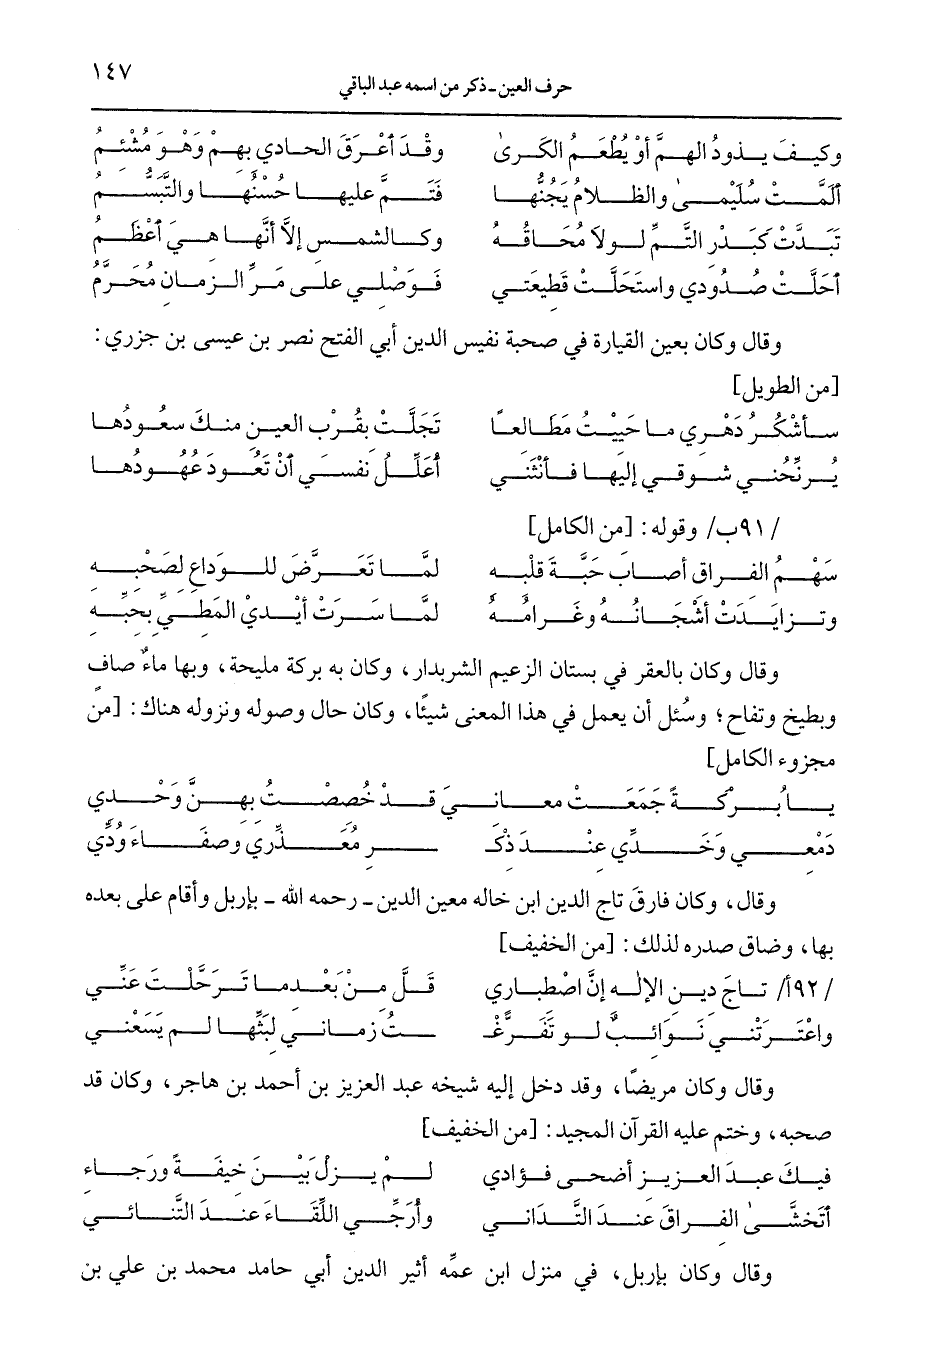 ١٤٧
حرف العين - ذكر من اسمه عبد الباقي
وكيفَ يذودُ الهمَّ أوْ يُطْعَمُ الكَرىٰ وقْدَ أعْرَقَ الحادي بهمْ وَهْوَ مُشْئِمُ
ألَمَّتْ سُلَيْمىٰ والظلامُ يَجُنُّها فَتَمَّ عليها حُسْنُها والتَّبَسُّمُ
تَبَدَّتْ كَبَدْرِ التَّمِّ لولا مُحَاقهُ وكالشمسِ إلاَّ أنَّها هيَ أعْظَمُ
أحَلَّتْ صُدُودي واستَحَلَّتْ قطيعَتي فَوَصْلي على مَرِّ الزمانِ مُحَرَّمُ
وقال وكان بعين القيارة في صحبة نفيس الدين أبي الفتح نصر بن عيسى بن جزري:
[من الطويل]
سأشْكُرُ دَهْري ما حَيِيْتُ مَطَالعاً تَجَلَّتْ بقُرْبِ العينِ منكَ سعُودُها
يُرنِّحُني شوقي إليها فأنْثَني أعَلِّلُ نفسي أنْ تَعُودَ عُهُودُها
/ ٩١ب/ وقوله: [من الكامل]
سَهْمُ الفراقِ أصابَ حَبَّةَ قلبِهِ لمَّا تَعَرَّضَ للوَداعِ لصَحْبِهِ
وتزايَدَتْ أشْجَانُهُ وغَرامُهُ لمَّا سَرَتْ أيْدي المَطيِّ بحبِّهِ
وقال وكان بالعقر في بستان الزعيم الشربدار، وكان به بركة مليحة، وبها ماءٌ صاف
وبطيخ وتفاح؛ وسُئل أن يعمل في هذا المعنى شيئاً، وكان حال وصوله ونزوله هناك: [من
مجزوء الكامل]
يا بُركَةً جَمَعَتْ معانيَ قدْ خُصِصْتُ بهنَّ وَحْدي
دَمْعي وَخَدِّي عنْدَ ذكْرِ مُعَذِّري وصفَاءَ وُدِّي
وقال، وكان فارق تاج الدين ابن خاله معين الدين - رحمه الله - بإربل وأقام على بعده
بها، وضاق صدره لذلك: [من الخفيف]
/ ٩٢أ/ تاجَ دينِ الإلٰهِ إنَّ اصْطِباري قَلَّ مِنْ بَعْدما تَرَحَّلْتَ عَنِّي
واعْتَرَتْني نَوَائبٌ لو تَفَرَّغْـ ـتُ زماني لبَثِّها لم يَسَعْني
وقال وكان مريضاً، وقد دخل إليه شيخه عبد العزيز بن أحمد بن هاجر، وكان قد
صحبه، وختم عليه القرآن المجيد: [من الخفيف]
فيكَ عبدَ العزيزِ أضحى فؤادي لمْ يزلْ بَيْنَ خيفَةً ورَجاءِ
أتَخشَّىٰ الفراقَ عندَ التَّداني وأُرَجِّي اللِّقاءَ عندَ التَّنائي
وقال وكان بإربل، في منزل ابن عمِّه أثير الدين أبي حامد محمد بن علي بن